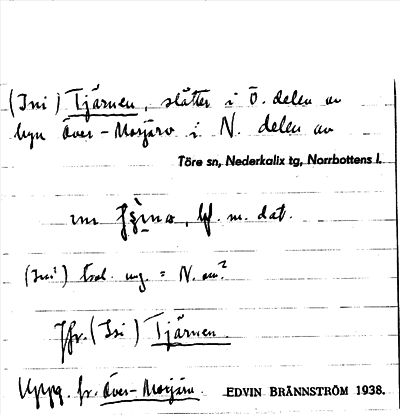 (Ini) Tjärnen, slåtter i Ö. delen av
byn Över-Morjärv i N. delen av
Töre sn, Nederkalix tg, Norrbottens l.
bf. m. dat.
(Ini) = N. om?
Jfr. (Isi) Tjärnen.
Uppg. fr. Över-Morjärv. EDVIN BRÄNNSTRÖM 1938.